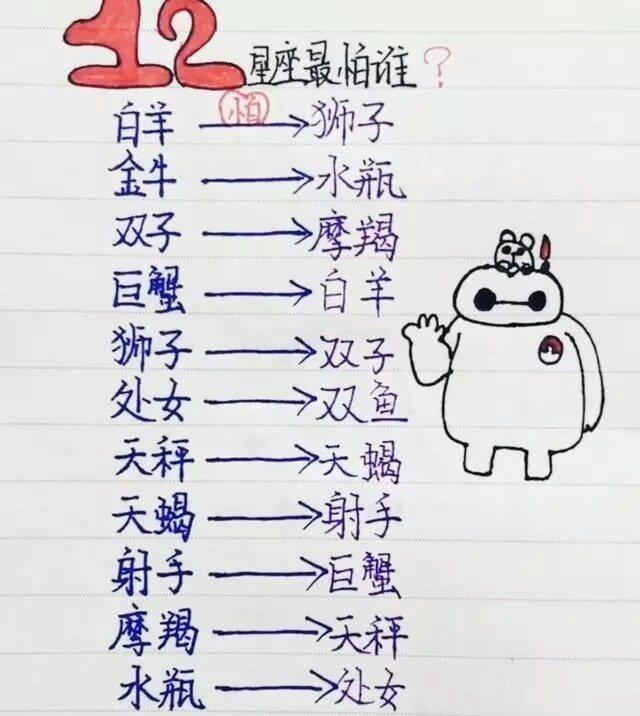 12星座最怕谁？
白羊 怕 狮子
金牛 水瓶
双子 摩羯
巨蟹 白羊
狮子 双子
处女 双鱼
天秤 天蝎
天蝎 射手
射手 巨蟹
摩羯 天秤
水瓶 处女